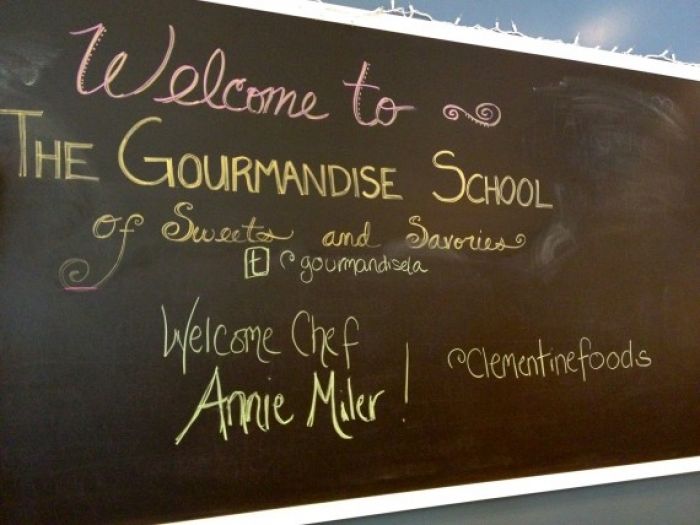 Welcome to
THE GOURMANDISE SCHOOL
of Sweets and Savories
t @gourmandisela
Welcome Chef
Annie Miler!
@Clementinefoods